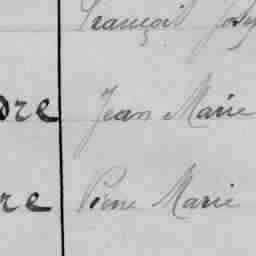 François Jose
dre Jean Marie
re Pierre Marie